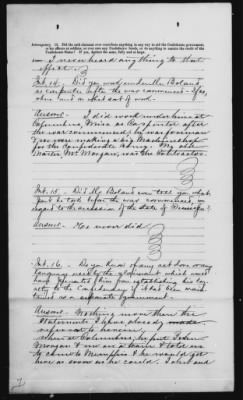 Interrogatory 13. Did the said claimant ever contribute anything in any way to aid the Confederate government,
or its officers or soldiers, or ever own any Confederate bonds, or do anything to sustain the credit of the
Confederate States? If you the answer the same, fully and at large.
— I never heard any thing to that
effect.
Int. 14. Did you work under Mr. Boland
as carpenter after the war commenced? If yes,
when and at what sort of work.
Answer. I did work under him at
Columbus, Miss as Carpenter after
the war commenced; he was foreman
We were making a big
for the Confederate Army. My old
Master, Mr. Morgan, was the Contractor.
Int. 15. Did Mr. Boland ever tell you what
part he took before the war commenced, in
regard to the secession of the State of
Answer. No never did
Int. 16. Do you know of any act done or any
language used by the claimant which would
have prevented him from establishing his loy-
alty to the Confederacy if it had been main-
tained as a separate government.
Answer. Nothing more than the
Statements I have already made
referred to herein.
When at Columbus, he put John
Morgan & me on a train & told us
to come to Memphis & he would get
here as soon as he could. John and